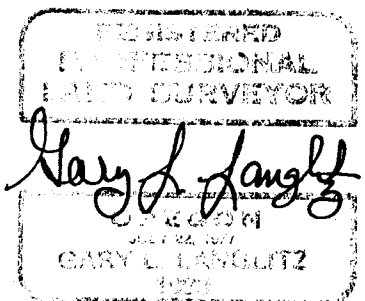 REGISTERED
PROFESSIONAL
LAND SURVEYOR
Gary L Langlitz
OREGON
GARY L. LANGLITZ